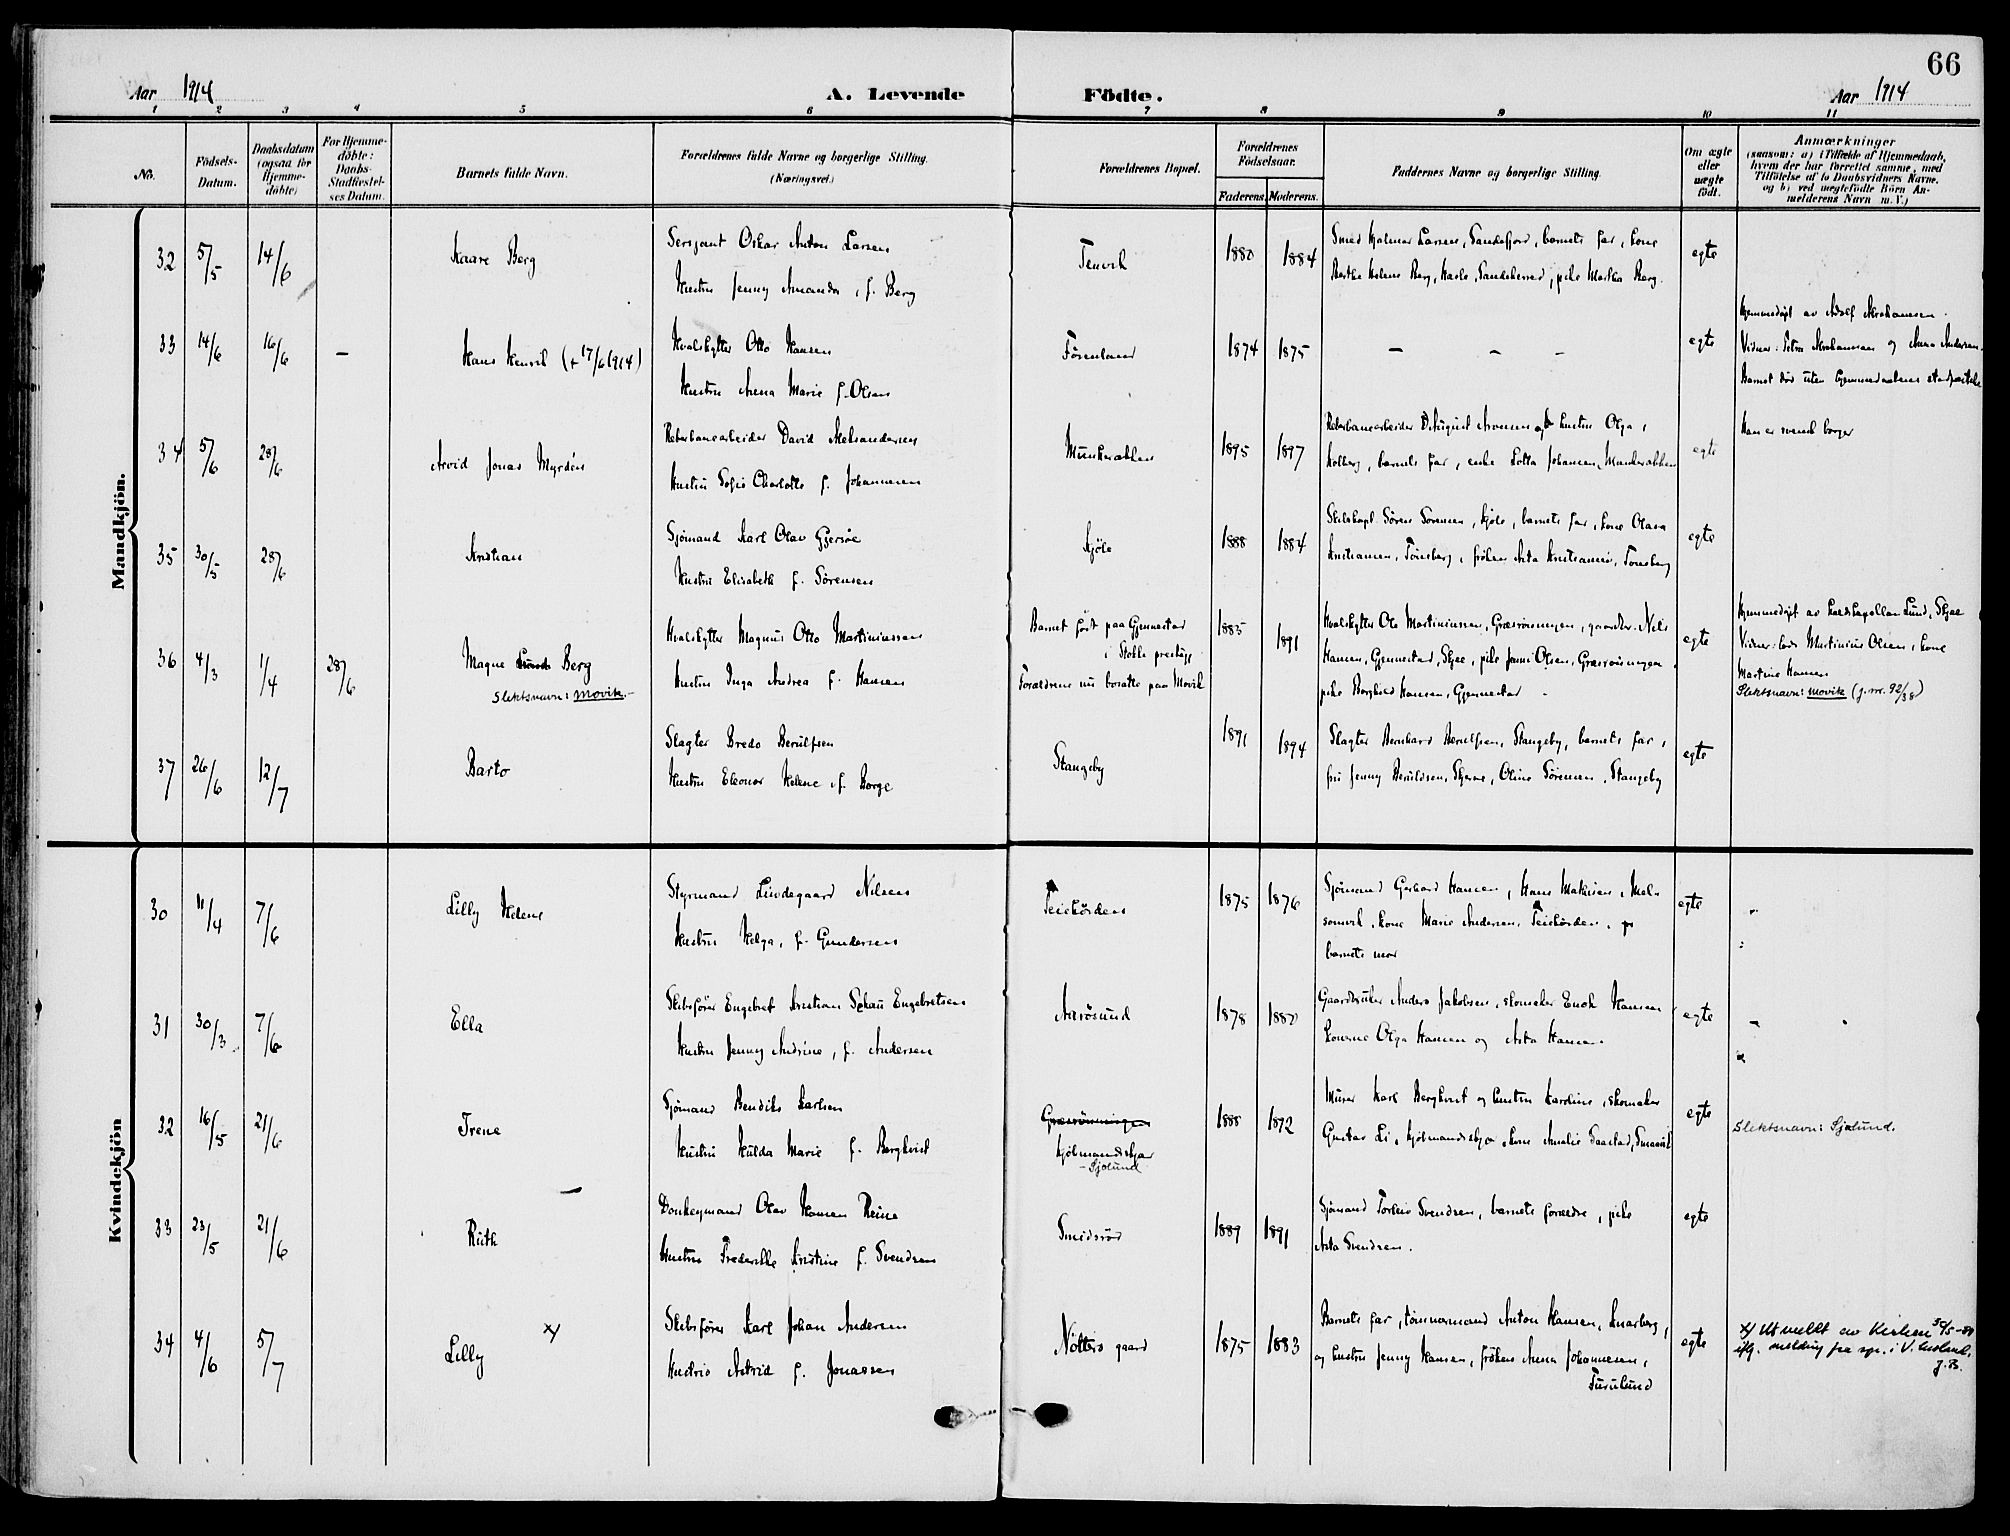 66
Aar 1914
A. Levende
Födte.
Aar 1914
1 2 3 4 5 6 7 8 9 10 11
No.
Födsels-
Datum.
Daabsdatum
(ogsaa for
Hjemme-
döbte)
For Hjemme-
döbte:
Daabs-
Stadfæstel-
ses Datum.
Barnets fulde Navn.
Forældrenes fulde Navne og borgerlige Stilling.
(Næringsvei.)
Forældrenes Bopæl.
Forældrenes
Födselsaar.
Faderens. Moderens.
Faddernes Navne og borgerlige Stilling.
Om ægte
eller
uægte
födt.
Anmærkninger
(saasom: a) i Tilfælde af Hjemmedaab,
hvem der har forrettet samme, med
Tilföielse af to Daabsvidners Navne.
og b) ved uægtefödte Börn An-
melderens Navn m. V.)
Mandkjön.
32 5/5 14/6
Kaare Berg
Sersjant Oskar Anton Larsen
Hustru Jenny Amanda, f. Berg
Tenvik
1880 1884
Smed Hjalmar Larsen, Sandefjord, barnets far, kone
Berthe Helene Berg, Hasle, Sandeherred, pike Martha Berg.
egte
33 14/6 16/6 –
Hans Henrik (+ 17/6 1914)
Hvalskytter Otto Hansen
Hustru Anna Marie f. Olsen
Förenland
1874 1875
– – –
egte
Hjemmedøpt av Adolf Abrahamsen.
Vidner: Petra Abrahamsen og Anna Andersen.
Barnet død uten hjemmedaabens stadfæstelse
34 5/6 28/6
Arvid Jonas Myrdén
Reberbanearbeider David Aleksandersen
Hustru Sofie Charlotte f. Johannesen
Munkerekken
1895 1897
Reberbanearbeider August Aronsen og hustru Olga,
Kolberg, barnets far, enke Lotta Johansen, Munkerekken
egte
Han er svensk borger
35 30/5 28/6
Kristian
Sjømand Karl Olav Gjersøe
Hustru Elisabeth f. Sörensen
Kjøle
1888 1884
Skibskapt. Sören Sörensen, Kjøle, barnets far, kone Olava
Kristiansen, Tönsberg, fröken Asta Kristiansen, Tönsberg
egte
36 4/3 1/4 28/6
Magne Lund Berg
Slektsnavn: Movik.-
Hvalskytter Magnus Otto Martiniussen
Hustru Inga Andrea f. Hansen
Barnet født paa Gjennestad
i Stokke prestegj.
Forældrene nu bosatte paa Movik
1885 1891
Hvalskytter Ole Martiniussen, Græsrönningen, gaardbr. Nils
Hansen, Gjennestad, Skjee, pike Jenni Olsen, Græsrönningen
pike Borghild Hansen, Gjennestad.
egte
Hjemmedøpt av Kaldskapellan Lund, Skjee
Vidner: lods Martinius Olsen, kone
Martine Hansen
Slektsnavn: Movik (j.nr. 92/38)
37 26/6 12/7
Barto
Slagter Bredo Berulfsen
Hustru Eleonor Helene, f. Borge
Stangeby
1891 1894
Slagter Bernhard Berulfsen, Stangeby, barnets far,
fru Jenny Beruldsen, Skjerve, Oline Sörensen, Stangeby
egte
Kvindekjön
30 11/4 7/6
Lilly Helene
Styrmand Lindegaard Nilsen
Hustru Helga, f. Gundersen
Teiekörden
1875 1876
Sjömand Gerhard Hansen, Hans Mathisen, Mel-
somvik, kone Marie Andersen, Teiekörden,
barnets mor
egte
31 30/3 7/6
Ella
Skibsfører Engebret Kristian Schau Engebretsen
Hustru Jenny Andrine, f. Andersen
Aarösund
1878 1880
Gaardbruker Anders Jakobsen, skomaker Enok Hansen
konerne Olga Hansen og Asta Hansen.
egte
32 16/5 21/6
Irene
Sjömand Bendiks Karlsen
Hustru Hulda Marie f. Bergkvist
Græsrönningen
Kjölmandskjær
- Sjølund
1888 1892
Murer Karl Bergkvist og hustru Karoline, skomaker
Gustav Li, Kjölmandskjær, kone Amalie Saastad, Smaavik
egte
Slektsnavn: Sjølund.
33 23/5 21/6
Ruth
Donkeymand Olav Hansen Reine
Hustru Frederikke Kristine f. Svendsen
Smidsröd
1889 1891
Sjömand Torleiv Svendsen, barnets forældre, pike
Asta Svendsen.
egte
34 4/6 5/7
Lilly x/
Skibsfører Karl Johan Andersen
Hustru Astrid f. Jonassen
Nötterö gaard
1875 1883
Barnets far, tömmermand Anton Hansen, Knarberg,
og hustru Jenny Hansen, fröken Anna Johannesen,
Furulund
egte
x/ Utmeldt av Kirken
iflg. melding fra spr. i V.